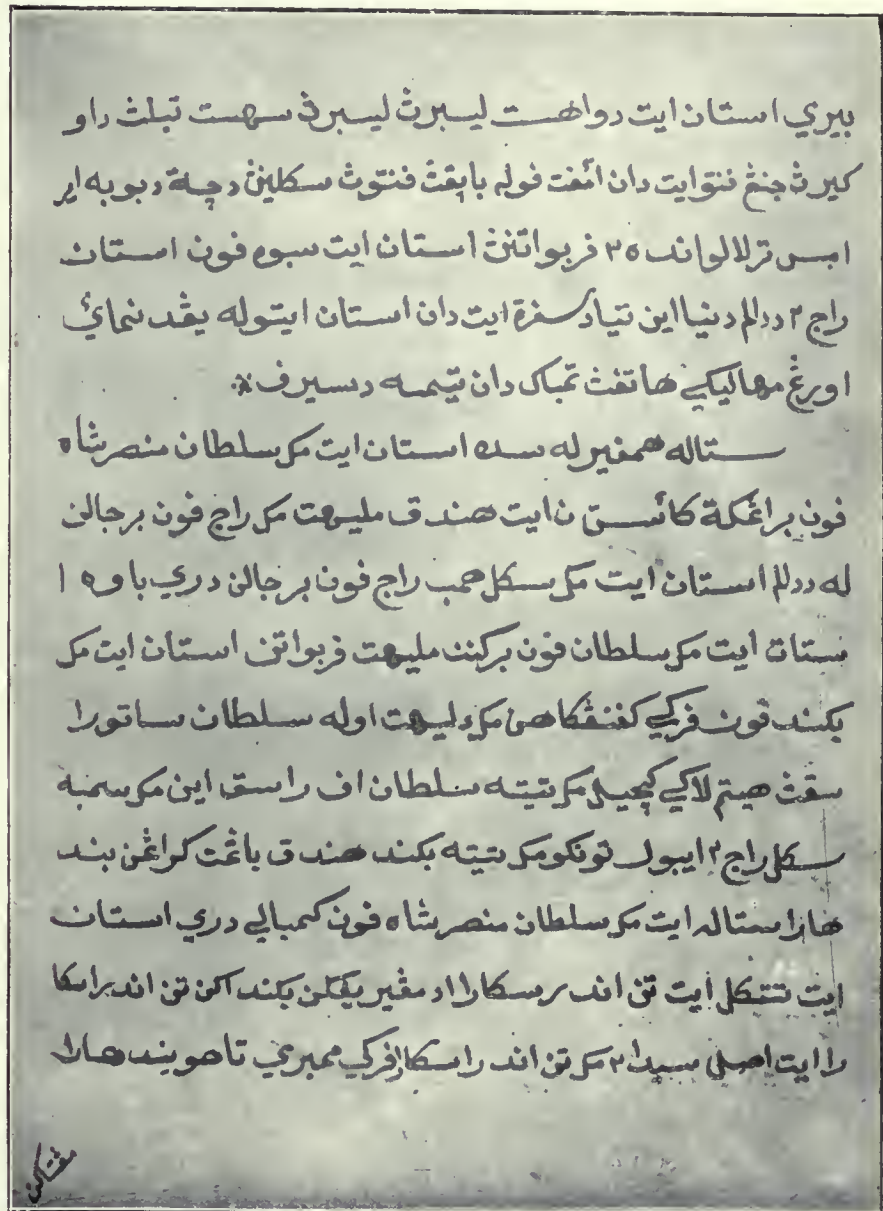 بيري استان ايت دواهست ليبرڽ ليبرڤ سهست تبلڽ داو
كيرڽ جنڠ فنتو ايت دان امڤت ڤوله بايقڽ ڤنتوڽ سكلين دچه دبوبه اير
امس ترلالو انده ٢ ڤربواتنڽ استان ايت سبوه ڤون استان
راج ٢ ددالم دنيا اين تياد سڤرة ايت دان استان ايتوله يڠد نماءي
اورڠ مهاليكي هاتڤڽ تمباݢ دان تيمه دسيرڤ
ستاله همڤيرله سده استان ايت مك سلطان منصر شاه
ڤون براڠكة كاستان ايت هندق مليهت مك راج ڤون برجالن
له ددالم استان ايت مك سكل حمب راج ڤون برجالن دري باوه ا
ستان ايت مك سلطان ڤون بركنن مليهت ڤربواتن استان ايت مك
بݢند ڤون ڤركي كڤنڠݢاهن مك دليهت اوله سلطان ساتو را
سقڽ هيتم لاݢي كچيل مك تيته سلطان اڤ راسق اين مك سمبه
سكل راج ٢ ايبول تونكو مك تيته بݢند هندق باڠت كراڠن بند
هارا ستاله ايت مك سلطان منصر شاه ڤون كمبالي دري استان
ايت تتكل ايت تن اندر سكارا اد مڠيريڠكن بݢند اكن تن اندر اسكا
را ايت اصلي سيدا ٢ مك تن اندراسكارا ڤركي ممبري تاهو بندهارا
مڠتاكن